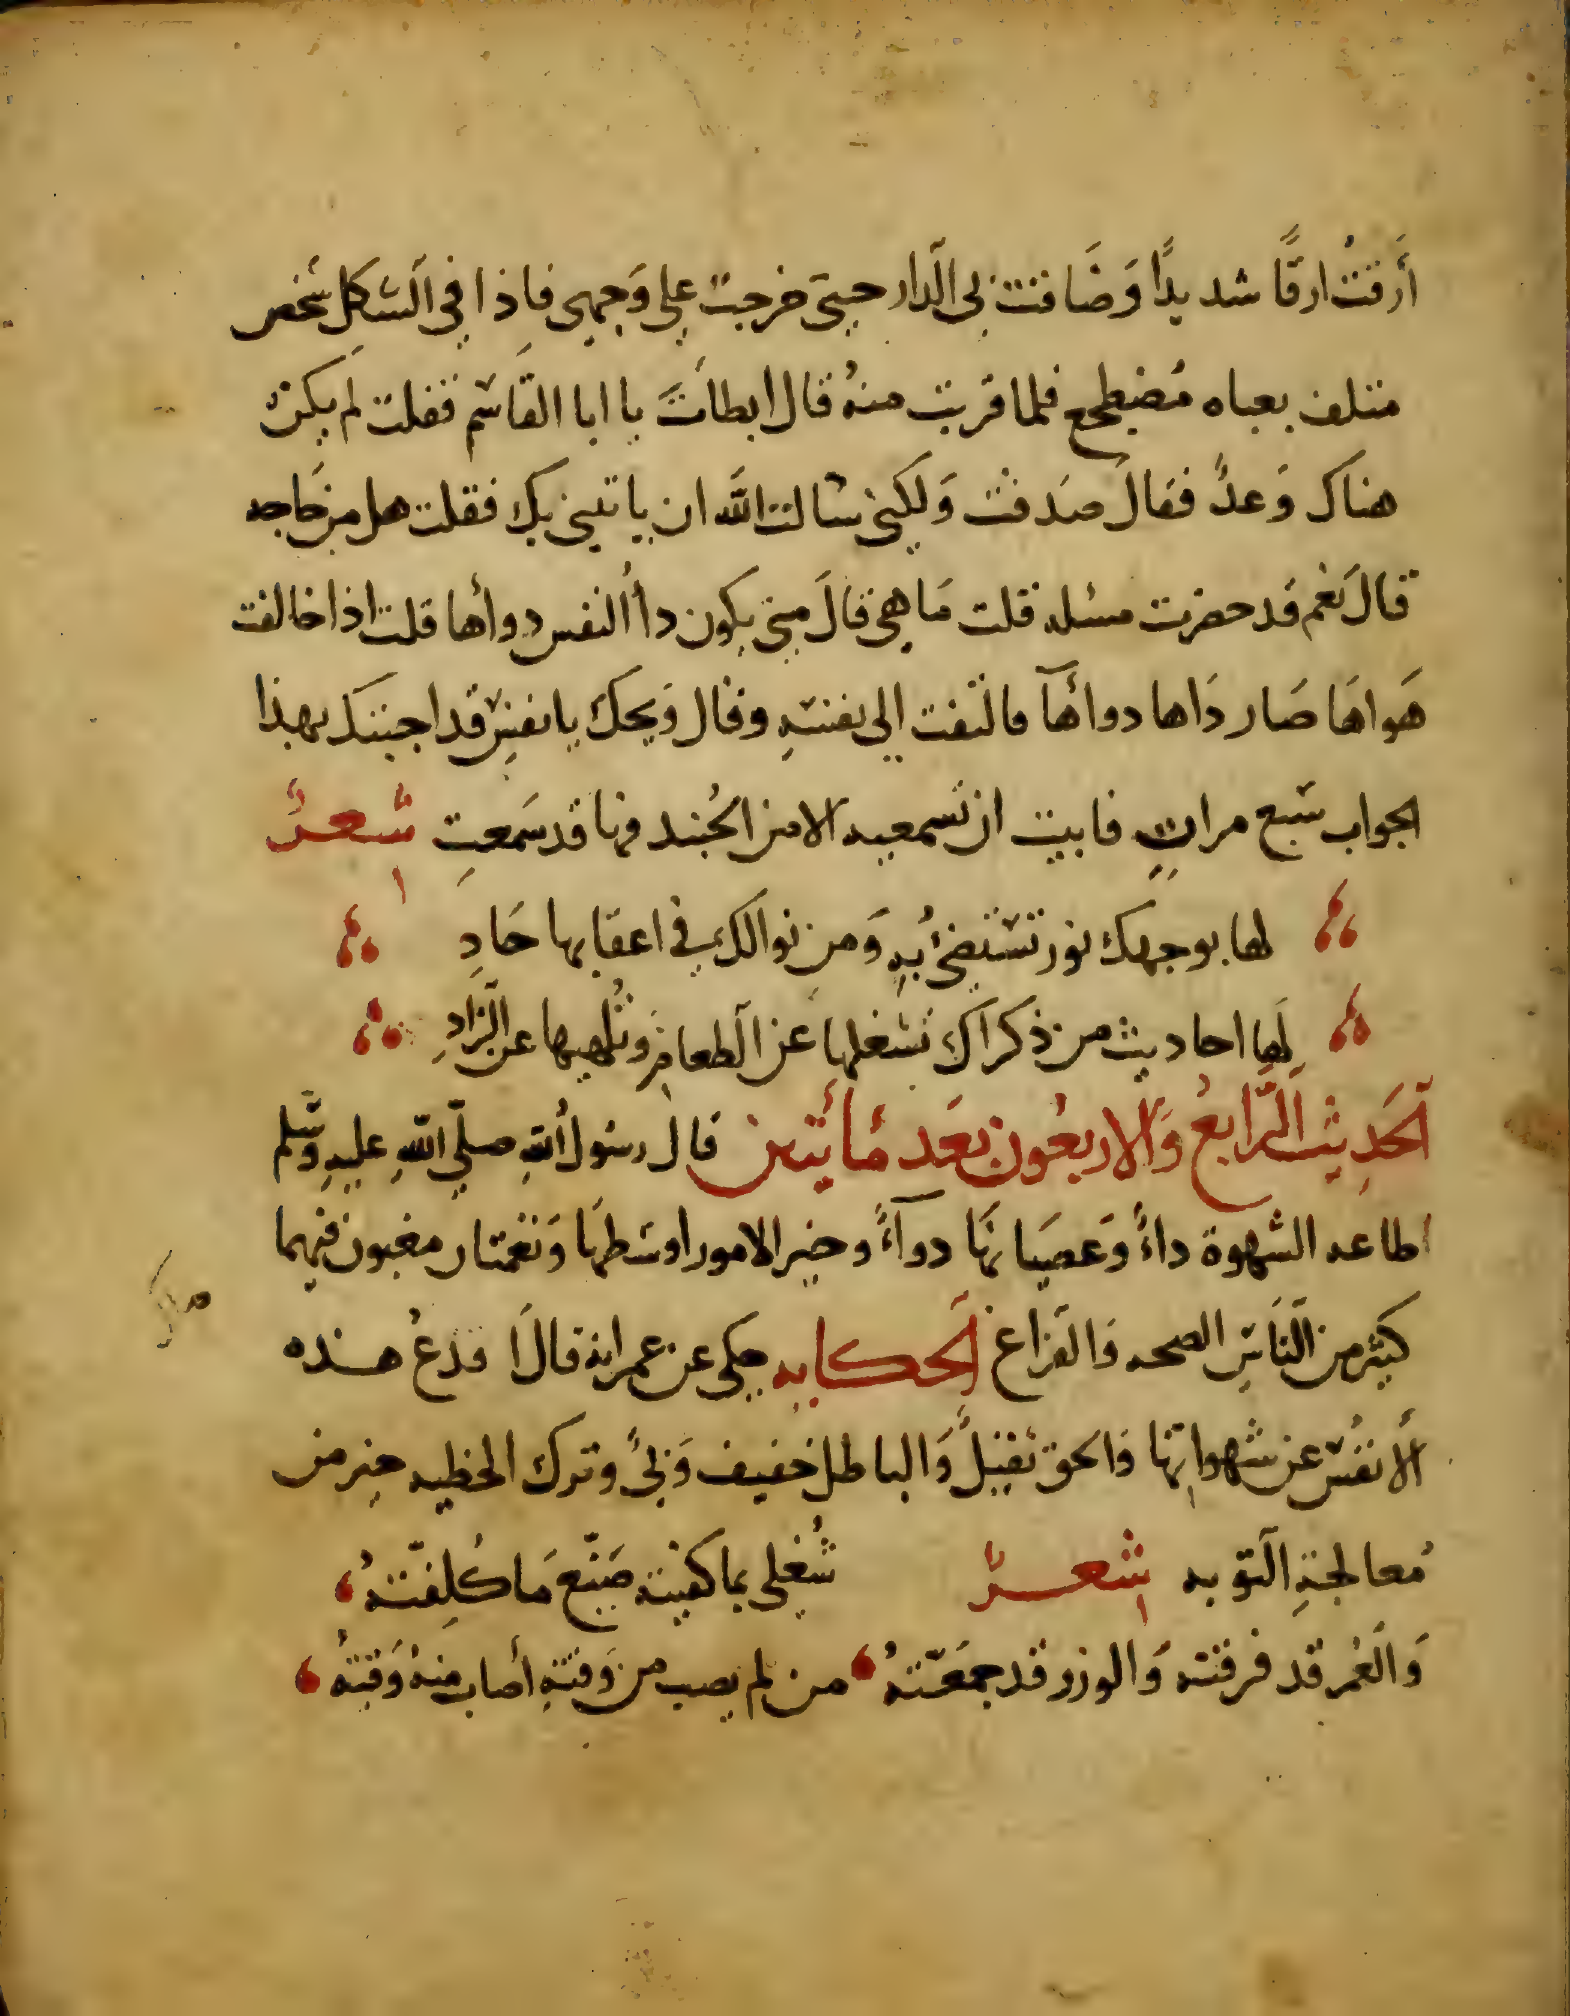 أَرقتُ ارقًا شديدًا وَضَاقت بى الدار حتى خرجت على وَجهى فاذا في السكك شخص
متلف بعباه مُضطجع فلما قربت منهُ قال ابطأتَ يا ابا القاسم فقلت لم يكن
هناك وَعدٌ فقالَ صدقت وَلكنى سالت الله ان ياتينى بك فقلت هل من حَاجه
قالَ نعَم قد حضرت مسئله قلت مَا هى قالَ متى يكون داأُ النفس دوأها قلت اذا خالفت
هَواهَا صَار دَاها دوأهآ فالتفت الى نفسهِ وقال وَيحك يا نفسِ قد اجبتك بهذا
الجواب سَبع مراتٍ فابيت ان تسمعيه الا من الجُنيد فها قد سَمعتِ شعرٌ
لها بوجهك نور تستضىُ بهِ وَمن نوالك في اعقابها حَادِ
لَها احاديث من ذكراك تشغلها عن الطعامِ وتُلهيها عن الزادِ
الحَديث الرّابعُ وَالاربعُون بعَد مأئتين قال رسُول اللهِ صلّى اللهِ عليهِ وسّلم
اطاعه الشهوة داءٌ وَعصيَانهَا دوآءٌ وخير الامور اوسَطهَا وَنعمتان مغبون فيهما
كثير من النّاسِ الصحه وَالفراغ الحكايه حكى عن عمر انه قالَ اقدعُ هذه
الأنفُسَ عن شهواتها فالحق ثقيلٌ وَالباطل خفيف وَبىٌ وترك الخطيه خير من
مُعالجةِ التوبه شعرٌ شُغلى بما كفيته ضَيّع مَا كُلِفّتهُ
وَالعُمر قد فرقته وَالوزر قد جمَعّتهُ من لم يصب من وَقتهِ أصاب منهُ وَقتهُ